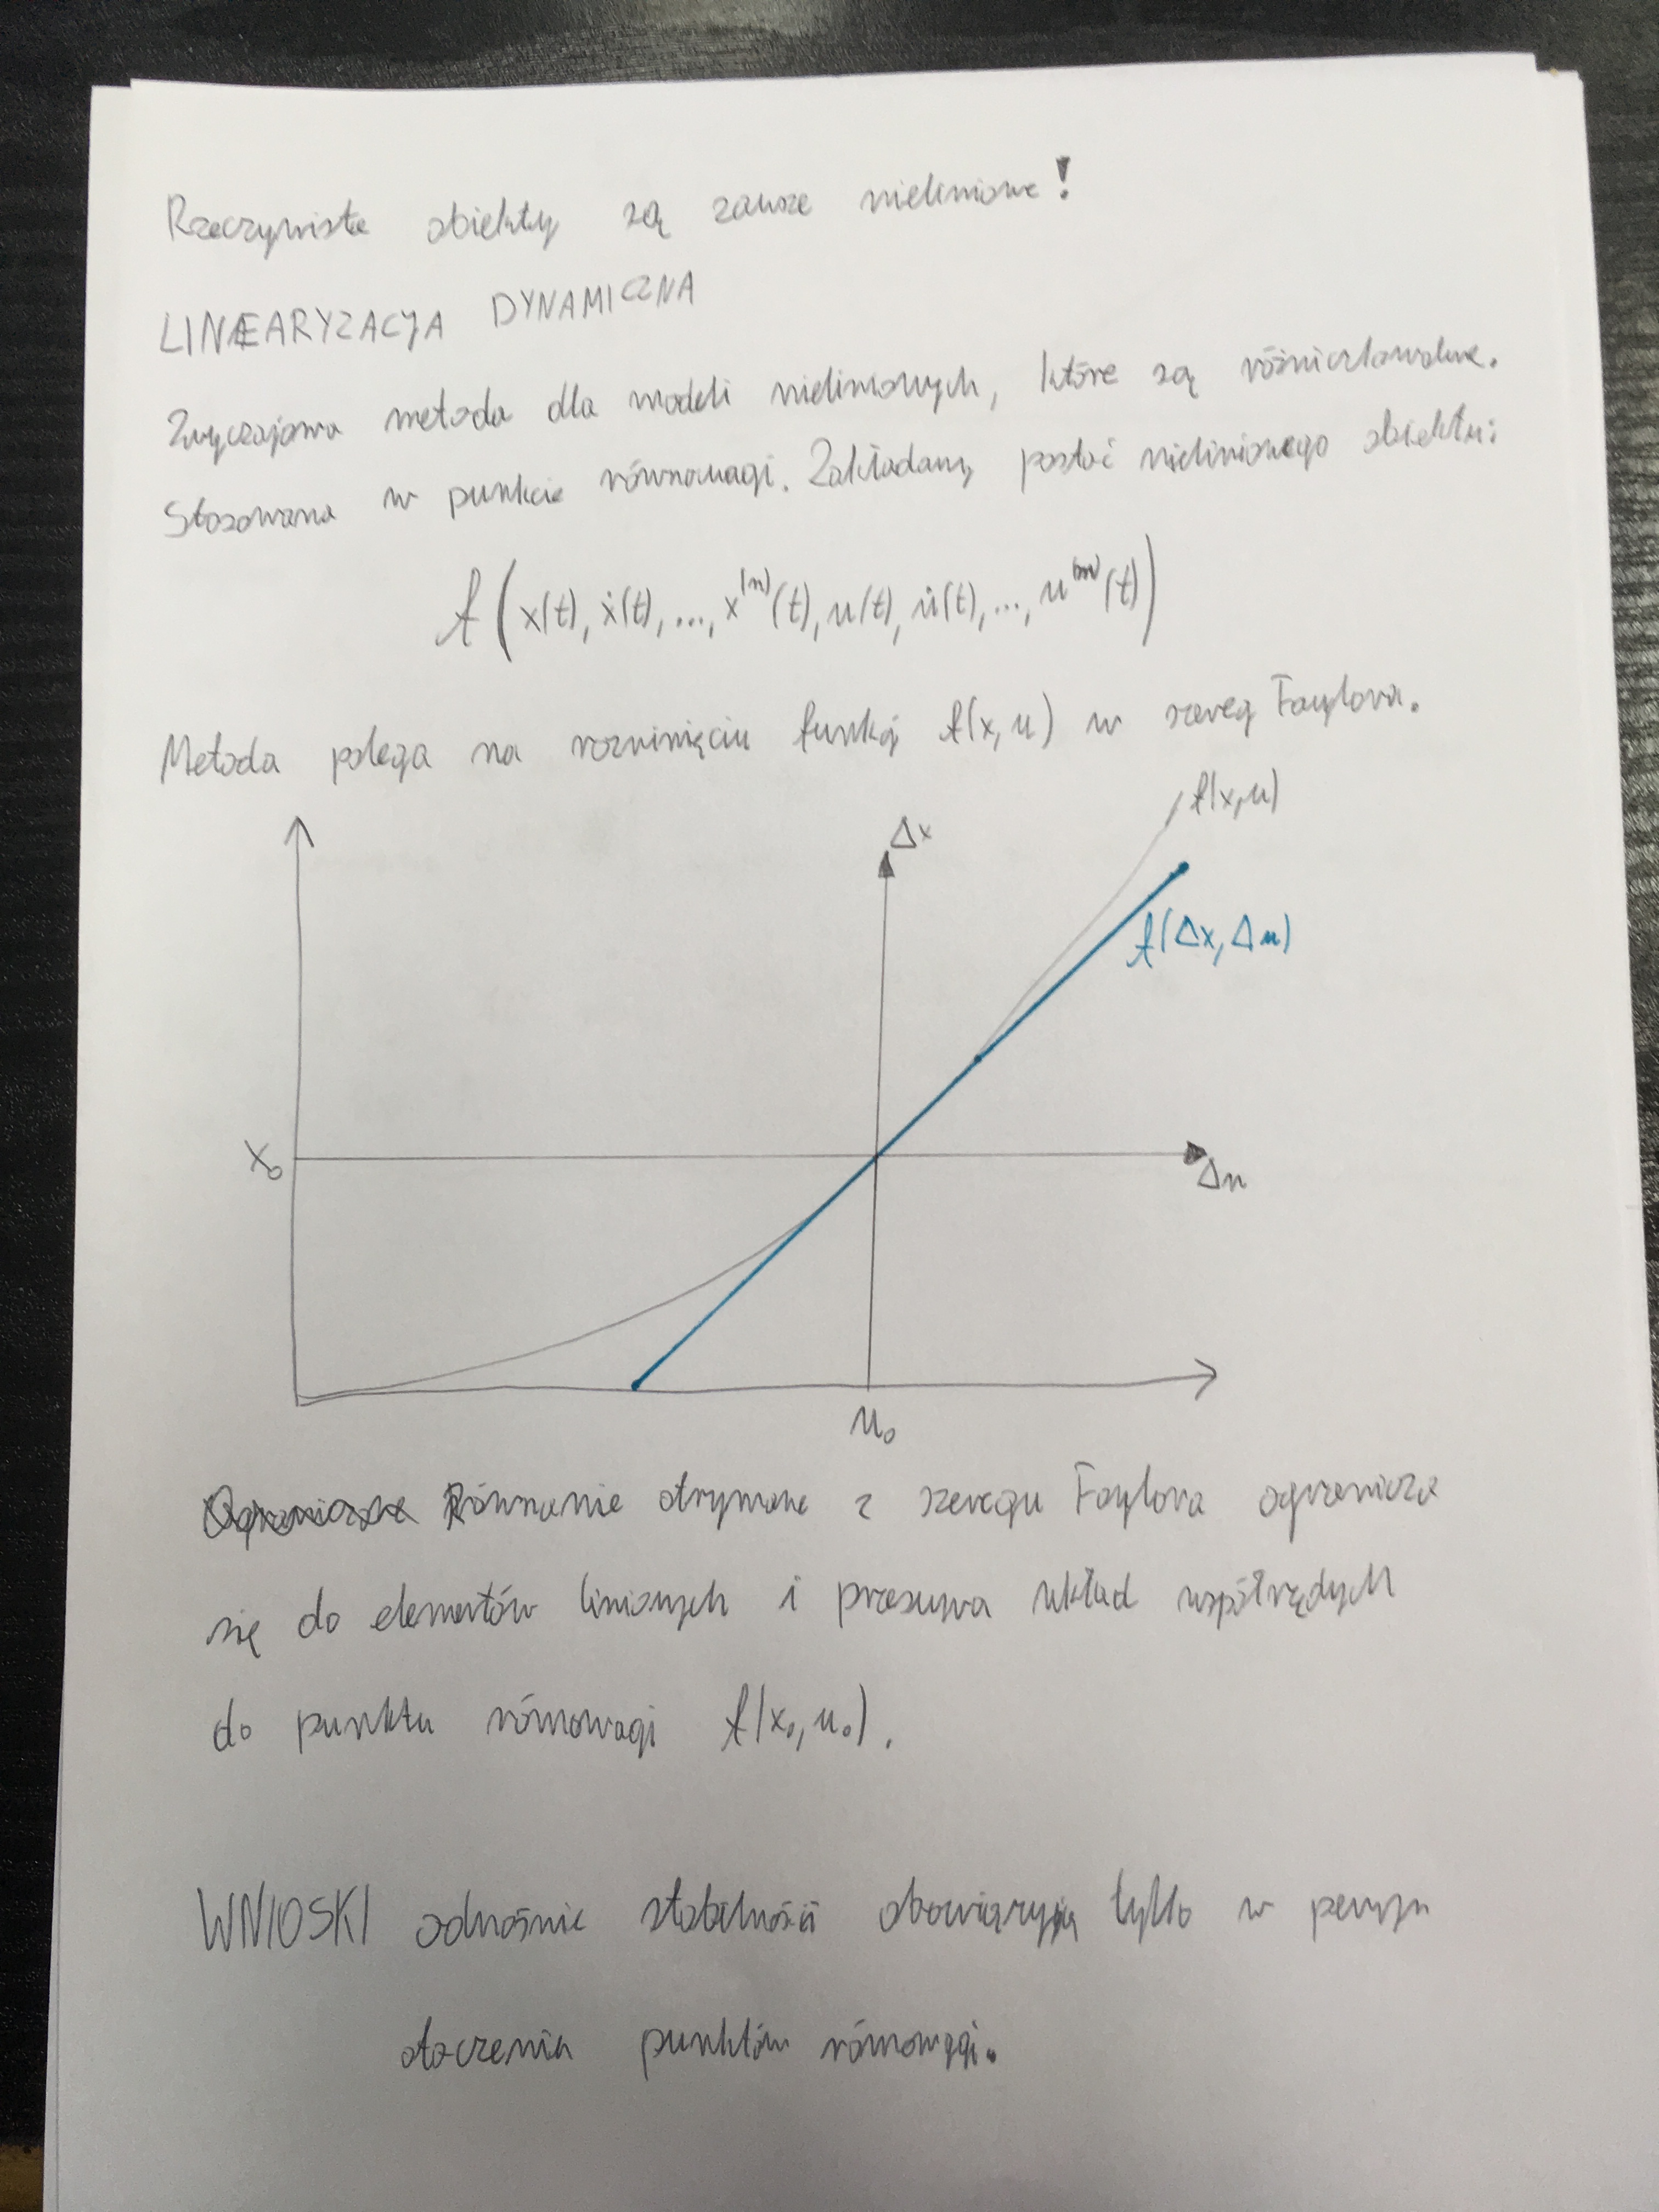 Rzeczywiste obiekty są zawsze nieliniowe!
LINEARYZACJA DYNAMICZNA
Zwyczajowa metoda dla modeli nieliniowych, które są różniczkowalne.
Stosowana w punkcie równowagi. Zakładamy postać nieliniowego obiektu:
f(x(t), ẋ(t), ..., x⁽ⁿ⁾(t), u(t), u̇(t), ..., u⁽ᵐ⁾(t))
Metoda polega na rozwinięciu funkcji f(x,u) w szereg Taylora.
f(x,u)
Δx
f(Δx, Δu)
x₀
Δu
u₀
Równanie otrzymane z szeregu Taylora ogranicza
się do elementów liniowych i przesuwa układ współrzędnych
do punktu równowagi f(x₀,u₀).
WNIOSKI odnośnie stabilności obowiązują tylko w pewnym
otoczeniu punktów równowagi.